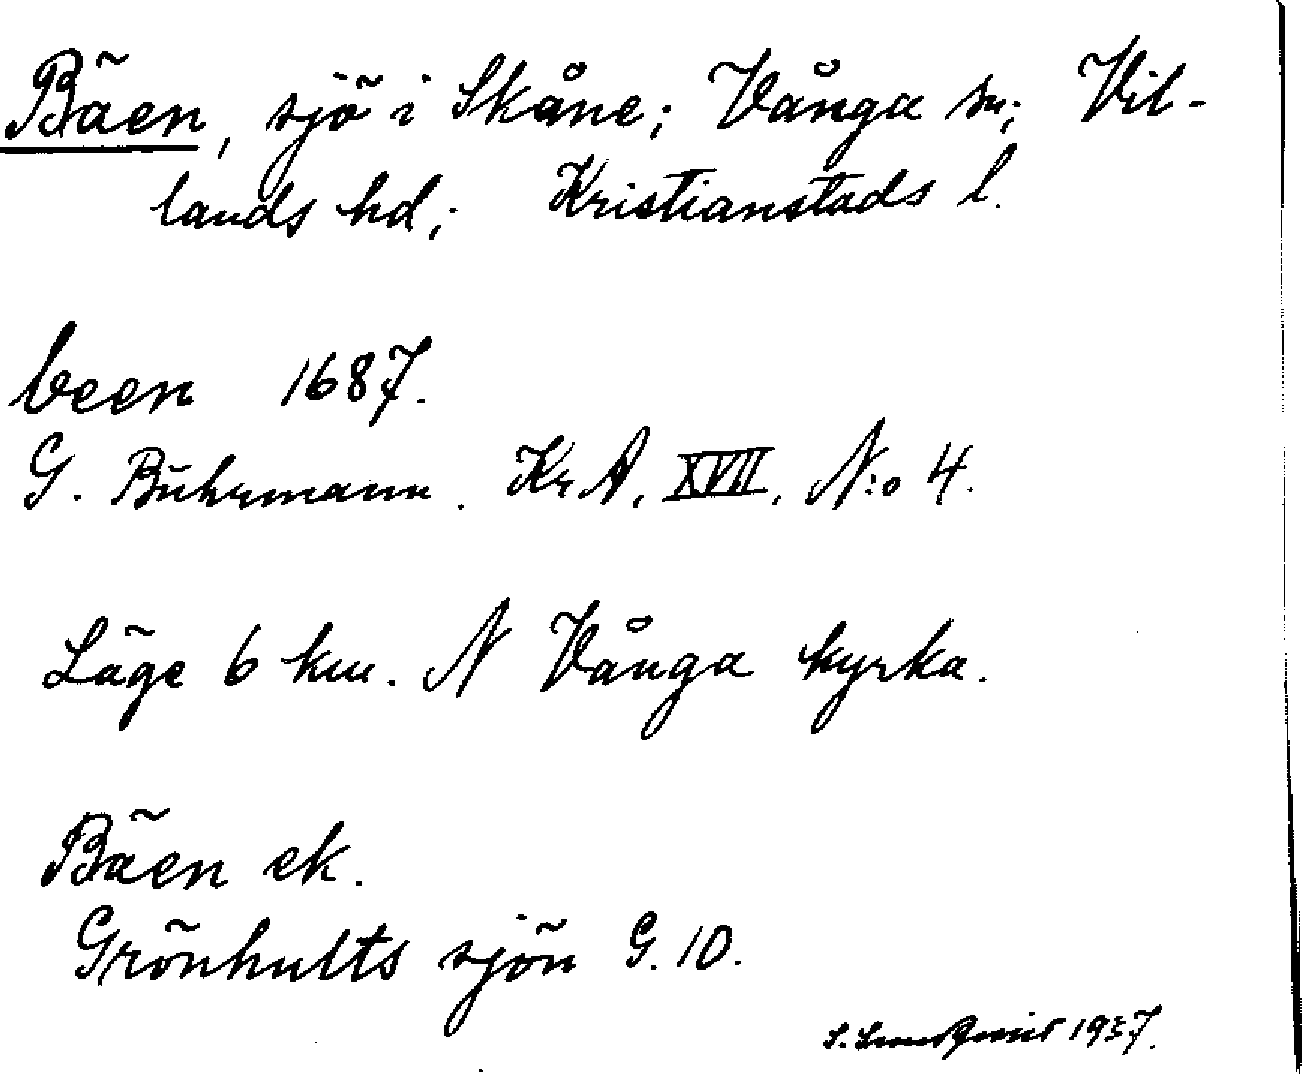 Bäen, sjö i Skåne; Vånga sn; Vil-
lands hd; Kristianstads l.
been 1687.
G. Buhrmann. Kr A. XVII. N:o 4.
Läge 6 km. N Vånga kyrka.
Bäen ek.
Grönhults sjön G. 10.
S. 1937.